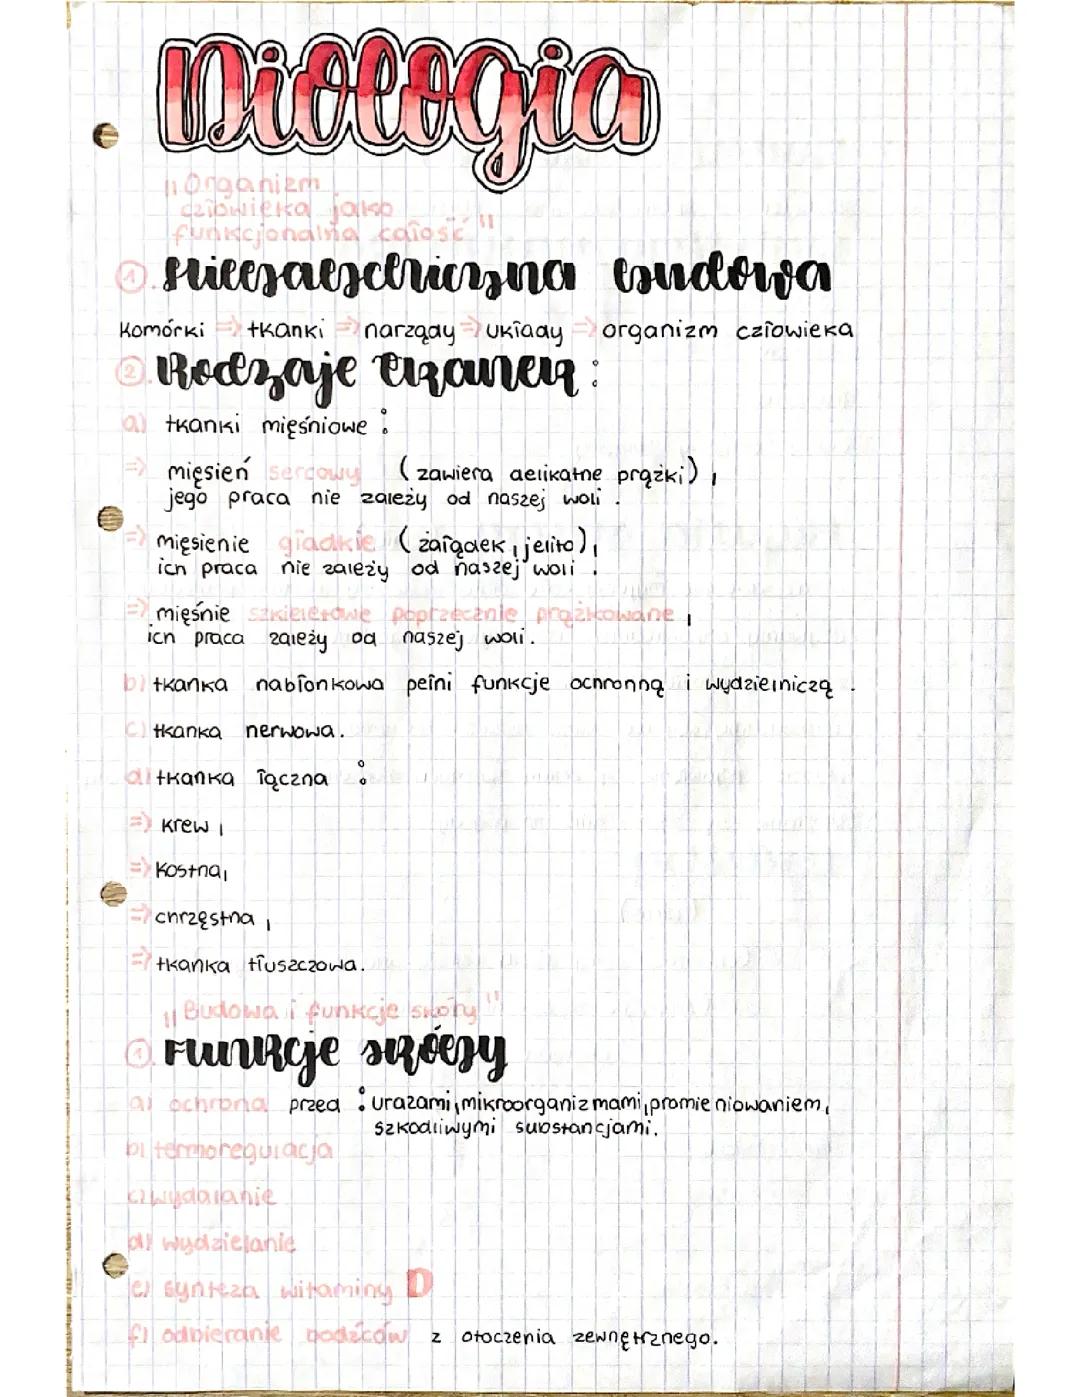 Biologia
"Organizm
człowieka jako
funkcjonalna całość"
1. Hierarchiczna budowa
Komórki => tkanki => narządy => układy => organizm człowieka
2. Rodzaje tkanek:
a) tkanki mięśniowe:
=> mięsień sercowy (zawiera delikatne prążki),
jego praca nie zależy od naszej woli.
=> mięsienie gładkie (żołądek, jelito),
ich praca nie zależy od naszej woli.
=> mięśnie szkieletowe poprzecznie prążkowane,
ich praca zależy od naszej woli.
b) tkanka nabłonkowa pełni funkcje ochronną i wydzielniczą.
c) tkanka nerwowa.
d) tkanka łączna:
=> krew,
=> kostna,
=> chrzęstna,
=> tkanka tłuszczowa.
"Budowa i funkcje skóry"
1. Funkcje skóry
a) ochrona przed: urazami, mikroorganizmami, promieniowaniem,
szkodliwymi substancjami.
b) termoregulacja
c) wydalanie
d) wydzielanie
e) synteza witaminy D
f) odbieranie bodźców z otoczenia zewnętrznego.